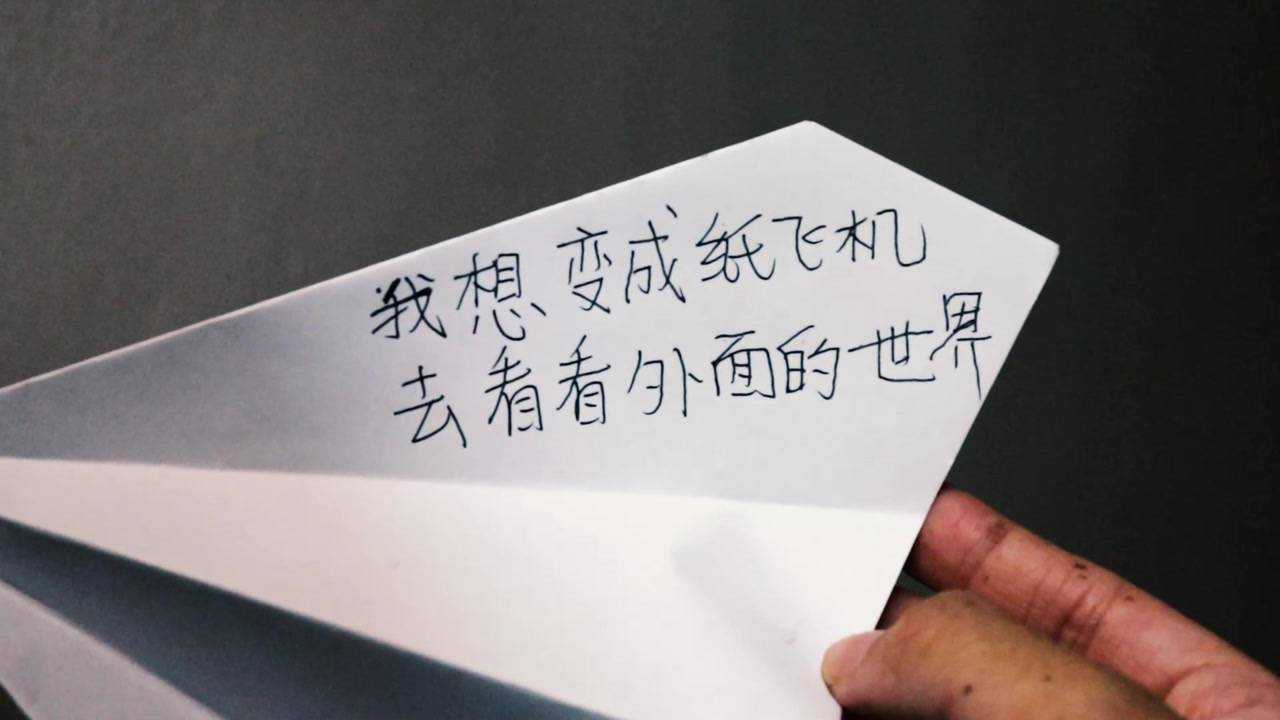 我想变成纸飞机
去看看外面的世界